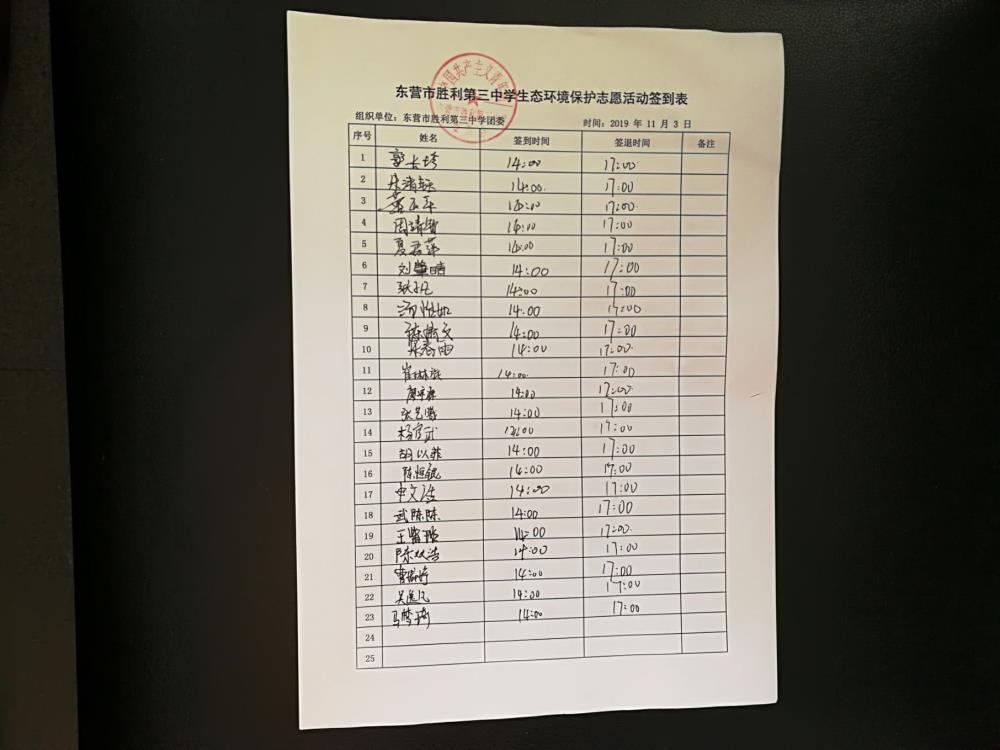 中国共产主义青年
东营市胜利第三中学生态环境保护志愿活动签到表
组织单位：东营市胜利第三中学团委 时间：2019 年 11 月 3 日
序号 姓名 签到时间 签退时间 备注
1 郭长 14:00 17:00
2 14:00. 17:00
3 董玉平 17:00
4 周靖 17:00
5 夏君萍 17:00
6 刘肇晴 14:00 17:00
7 张凡 14:00 17:00
8 14:00 17:00
9 陈 文 14:00 17:00
10 雨 14:00 17:00.
11 崔琳 14:00. 17:00
12 14:00 17:00.
13 张艺 14:00 17:00
14 杨 武 17:00
15 胡以菲 14:00 17:00
16 陈恒 14:00 17:00
17 申文洁 14:00 17:00
18 武陈陈 14:00 17:00
19 王 14:00 17:00.
20 陈双浩 14:00 17:00
21 曹 婷 14:00 17:00
22 吴逸凡 14:00 17:00
23 马梦琦 14:00 17:00
24
25